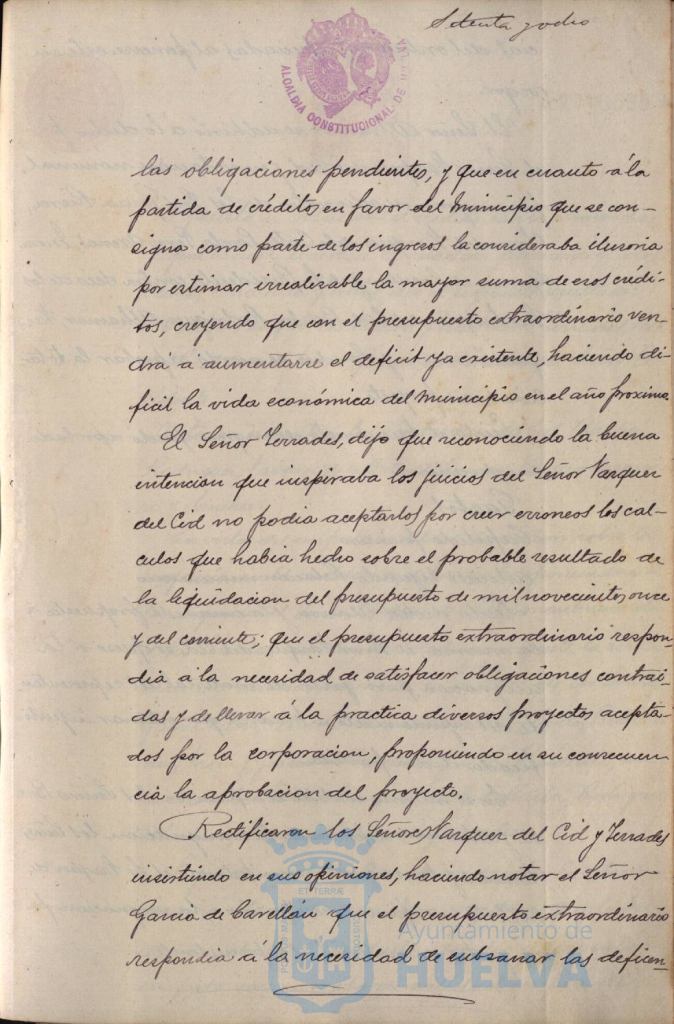 Setenta y ocho
ALCALDIA CONSTITUCIONAL DE HUELVA
las obligaciones pendientes, y que en cuanto á la
partida de créditos en favor del Municipio que se con-
signa como parte de los ingresos la consideraba ilusoria
por estimar irrealizable la mayor suma de esos crédi-
tos, creyendo que con el presupuesto extraordinario ven-
drá á aumentarse el deficit ya existente, haciendo di-
ficil la vida económica del Municipio en el año proximo.
El Señor Terrades, dijo que reconociendo la buena
intencion que inspiraba los juicios del Señor Vazquez
del Cid no podia aceptarlos por creer erroneos los cal-
culos que habia hecho sobre el probable resultado de
la liquidacion del presupuesto de mil novecientos once
y del corriente; que el presupuesto extraordinario respon-
dia á la necesidad de satisfacer obligaciones contrai-
das y de llevar á la practica diversos proyectos acepta-
dos por la corporacion, proponiendo en su consecuen
cia la aprobacion del proyecto.
Rectificaron los Señores Vazquez del Cid y Terrades
insistiendo en sus opiniones, haciendo notar el Señor
Garcia de Cavellán que el presupuesto extraordinario
respondia á la necesidad de subsanar las deficen-
Ayuntamiento de
HUELVA